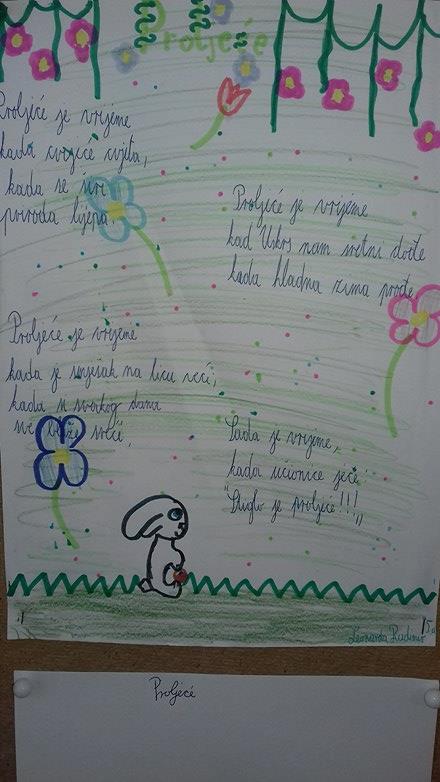 Proljeće
Proljeće je vrijeme
kada cvijeće cvjeta,
kada se sva
priroda lijepa.
Proljeće je vrijeme
kad Uskrs nam sretni dođe
kada hladna zima prođe
Proljeće je vrijeme
kada je smješak na licu veći,
kada su svakog dana
svi bliži sreći,
Sada je vrijeme,
kada učionice ječe
"Stiglo je proljeće!!!"
Leonarda
Proljeće